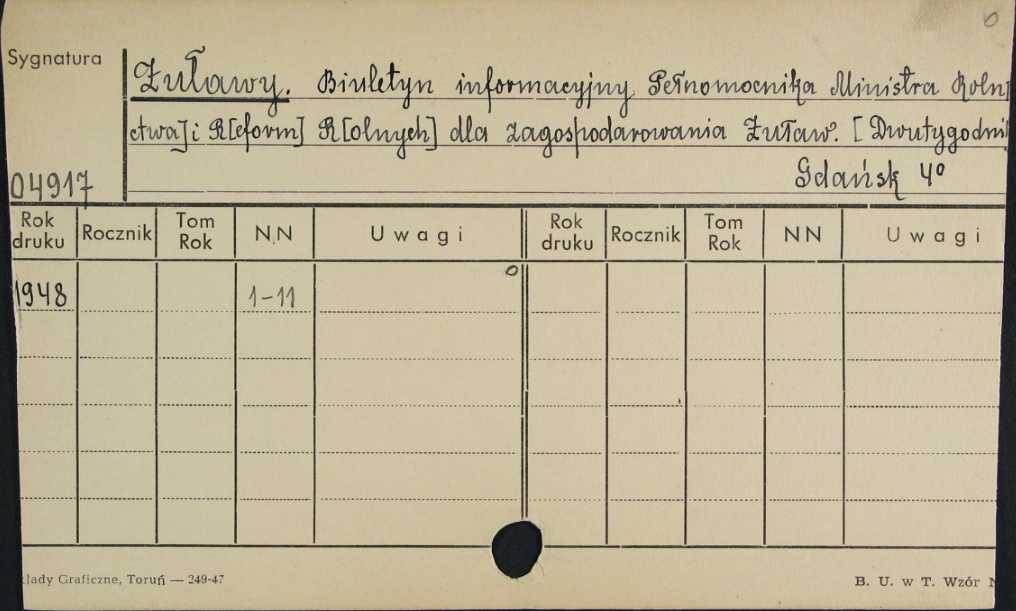 o
Sygnatura
Żuławy. Biuletyn informacyjny Pełnomocnika Ministra Roln
ctwa] i R[eform] R[olnych] dla zagospodarowania Żuław. [Dwutygodni
Gdańsk 4°
04917
Rok druku Rocznik Tom Rok N.N Uwagi Rok druku Rocznik Tom Rok NN Uwagi
1948 1-11
łady Graficzne, Toruń — 249-47 B. U. w T. Wzór N